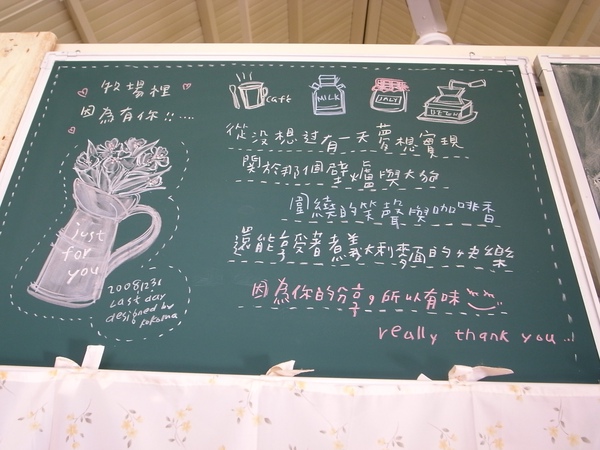 牧場裡
因為有你!!....
caft
MILK
從沒想过有一天夢想實現
関於那個壁爐與大狗
圍繞的笑聲與咖啡香
還能享受著煮義大利麵的快樂
因為你的分享，所以有味
really thank you...!
just
for
you
20081231
Last day
designed by